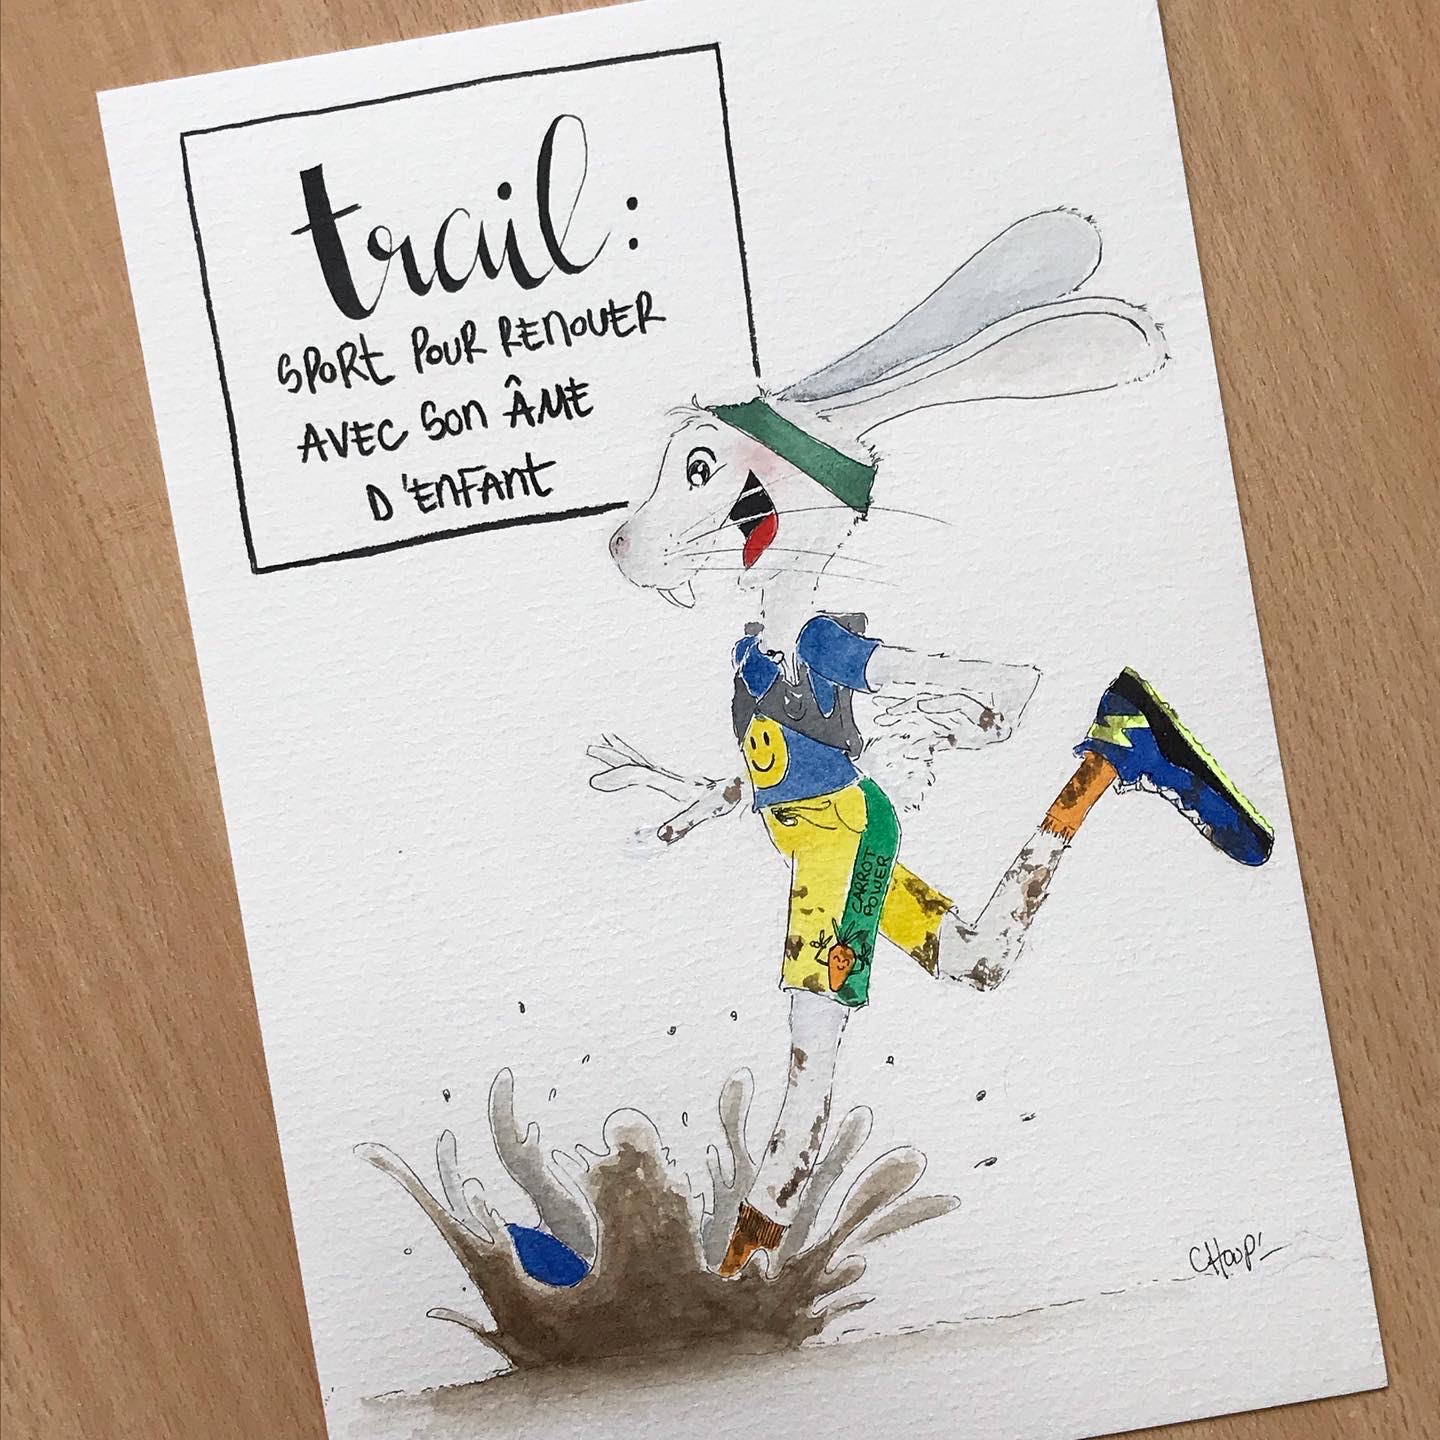 trail :
SPORT POUR RENOUER
AVEC SON ÂME
D'ENFANT
CARROT
POWER
CHOUP'